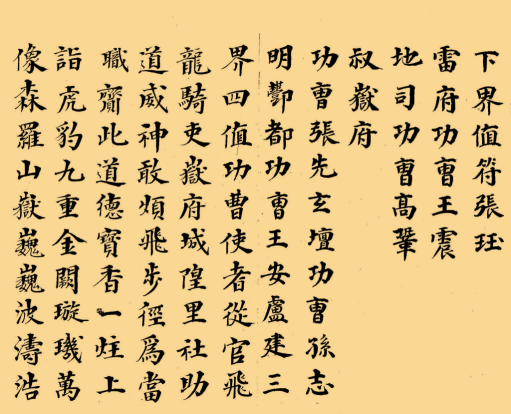 下界值符張玨
雷府功曹王震
地司功曹高鞏
叔嶽府
功曹張先玄壇功曹孫志
明酆都功曹王安盧建三
界四值功曹使者從官飛
龍騎吏嶽府城隍里社助
道威神敢煩飛步徑爲當
職齎此道德寳香一炷上
詣虎豹九重金闕璇璣萬
像森羅山嶽巍巍波濤浩